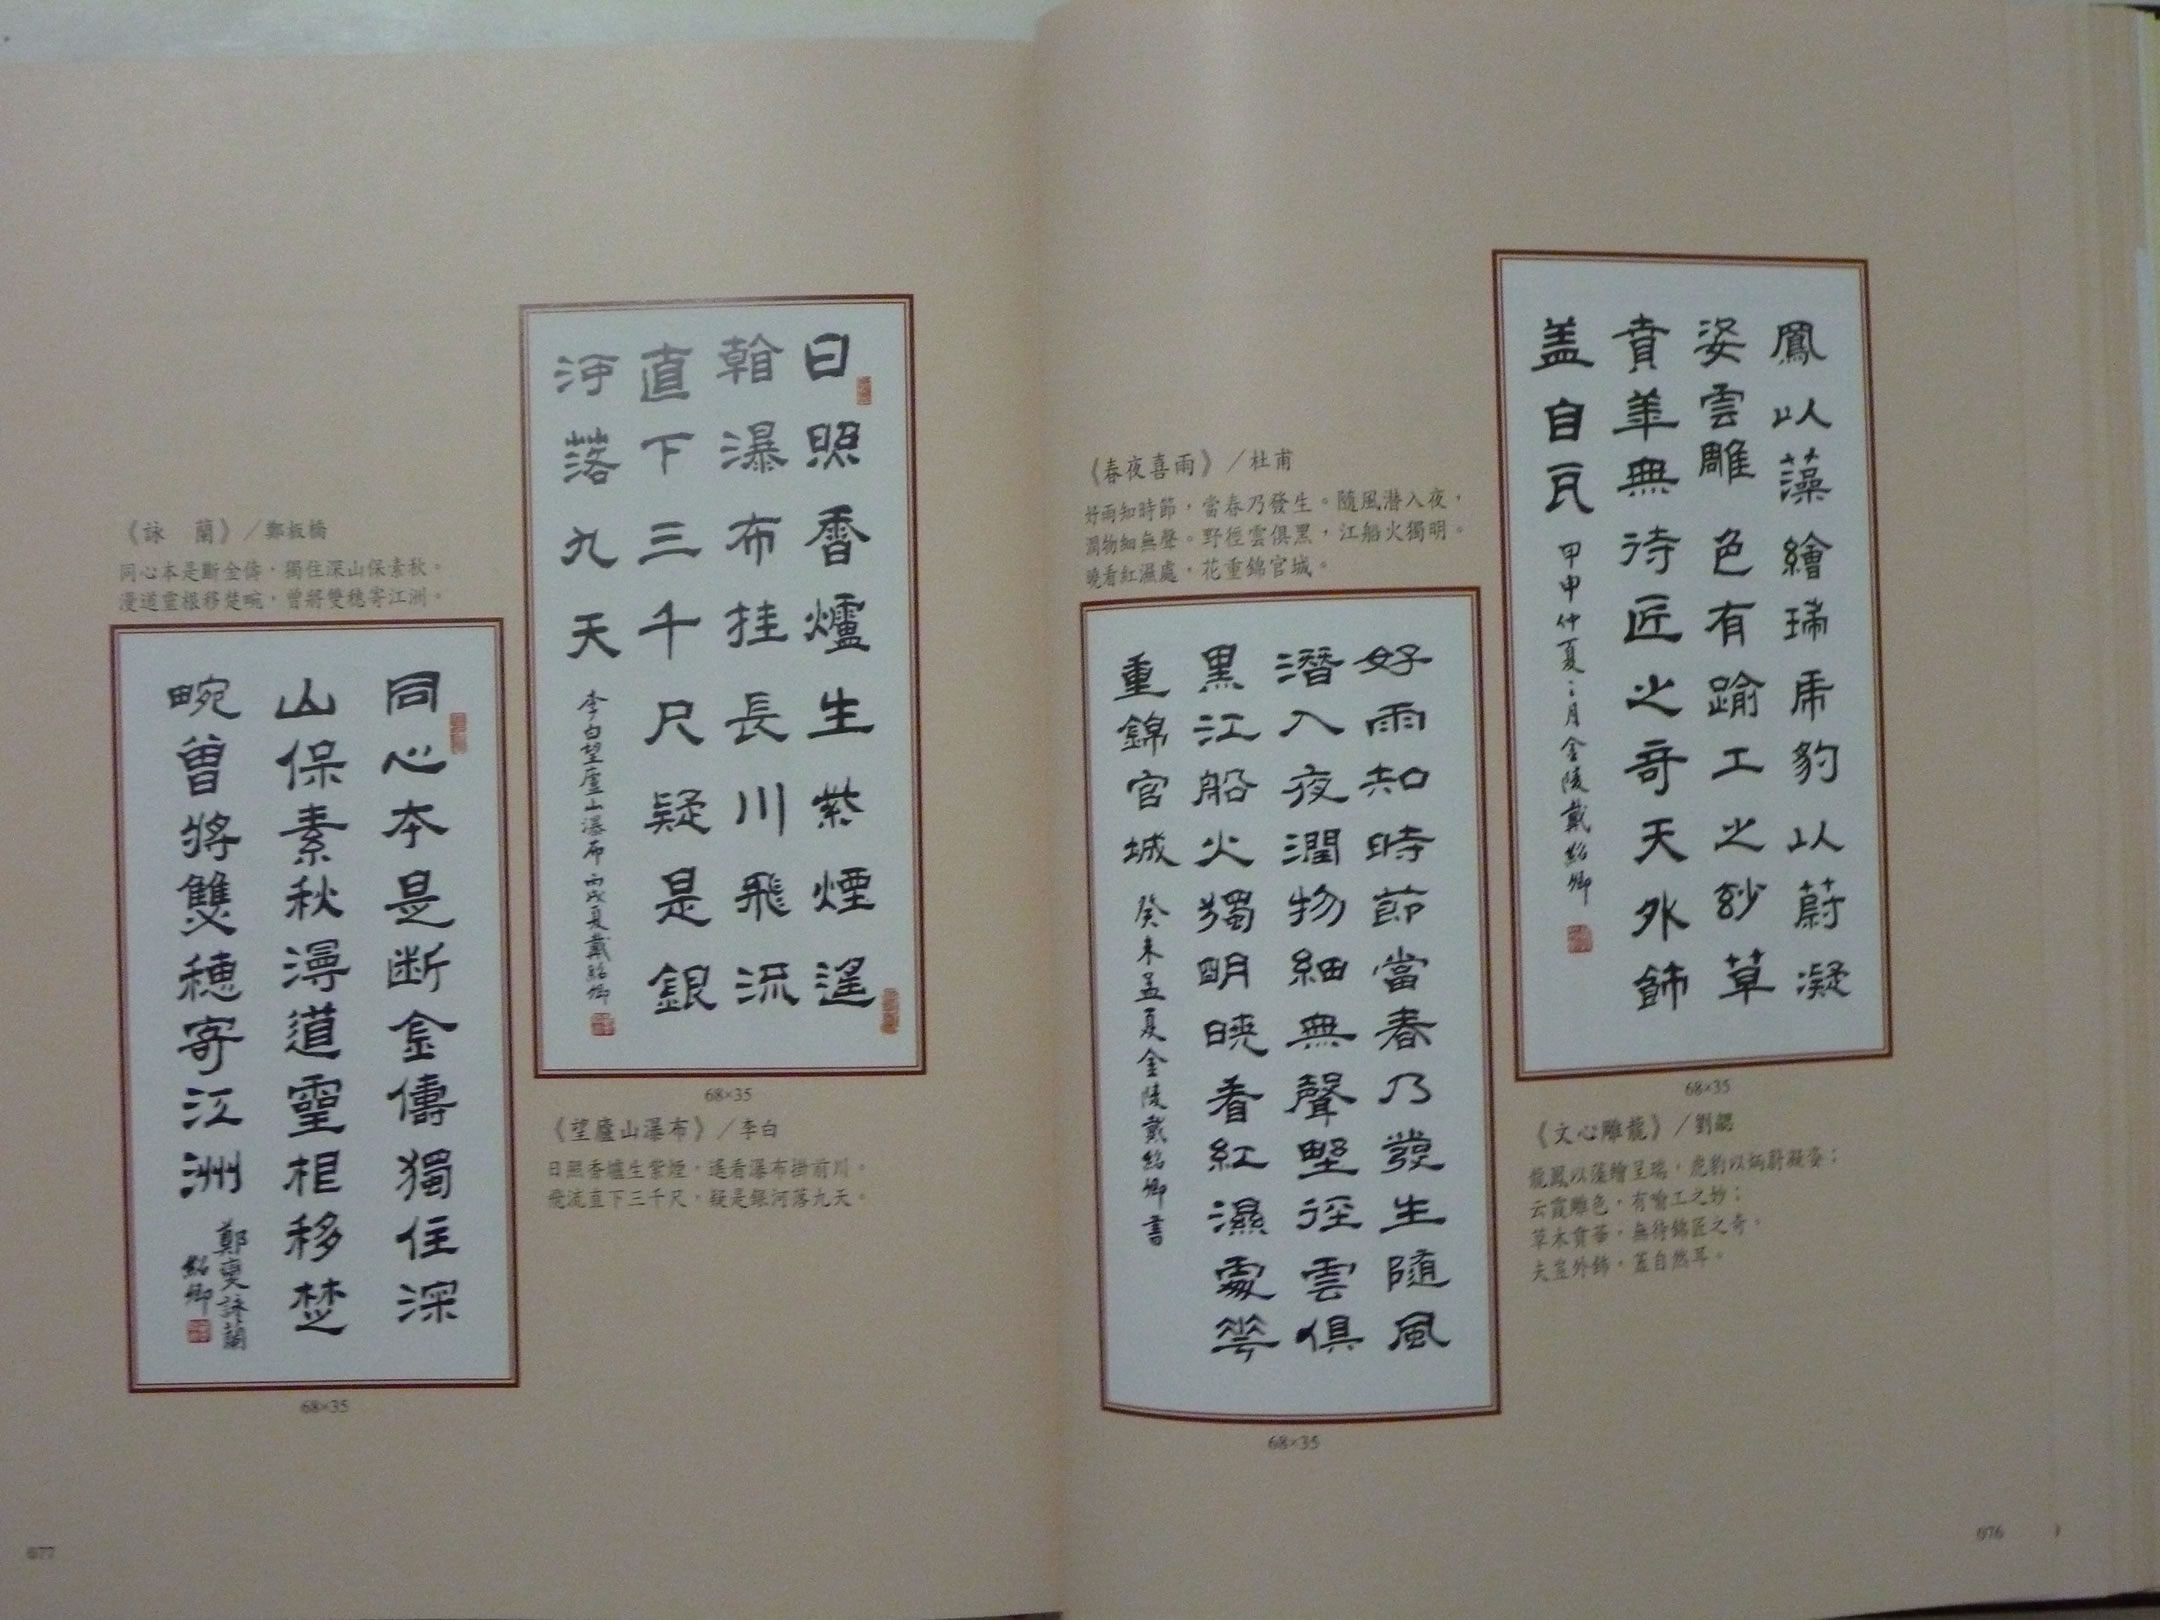 鳳以藻繪瑞虎豹以蔚凝
姿雲雕色有踰工之玅草
賁華無待匠之奇天外飾
盖自瓦
甲申仲夏之月金陵戴紹卿
68×35
《文心雕龍》／劉勰
龍鳳以藻繪呈瑞，虎豹以炳蔚凝姿；
云霞雕色，有喻工之妙；
草木賁華，無待錦匠之奇。
夫豈外飾，蓋自然耳。
《春夜喜雨》／杜甫
好雨知時節，當春乃發生。隨風潛入夜，
潤物細無聲。野徑雲俱黑，江船火獨明。
曉看紅濕處，花重錦官城。
好雨知時節當春乃發生隨風
潛入夜潤物細無聲野徑雲俱
黑江船火獨明曉看紅濕處華
重錦官城
癸未孟夏金陵戴紹卿書
68×35
076
日照香爐生紫煙遙
看瀑布挂長川飛流
直下三千尺疑是銀
河落九天
李白望廬山瀑布丙戌夏戴紹卿
68×35
《望廬山瀑布》／李白
日照香爐生紫煙，遙看瀑布掛前川。
飛流直下三千尺，疑是銀河落九天。
《詠　蘭》／鄭板橋
同心本是斷金儔，獨住深山保素秋。
漫道靈根移楚畹，曾將雙穗寄江洲。
同心本是断金儔獨住深
山保素秋漫道靈根移楚
畹曾將雙穗寄江洲
鄭燮詠蘭
紹卿
68×35
077